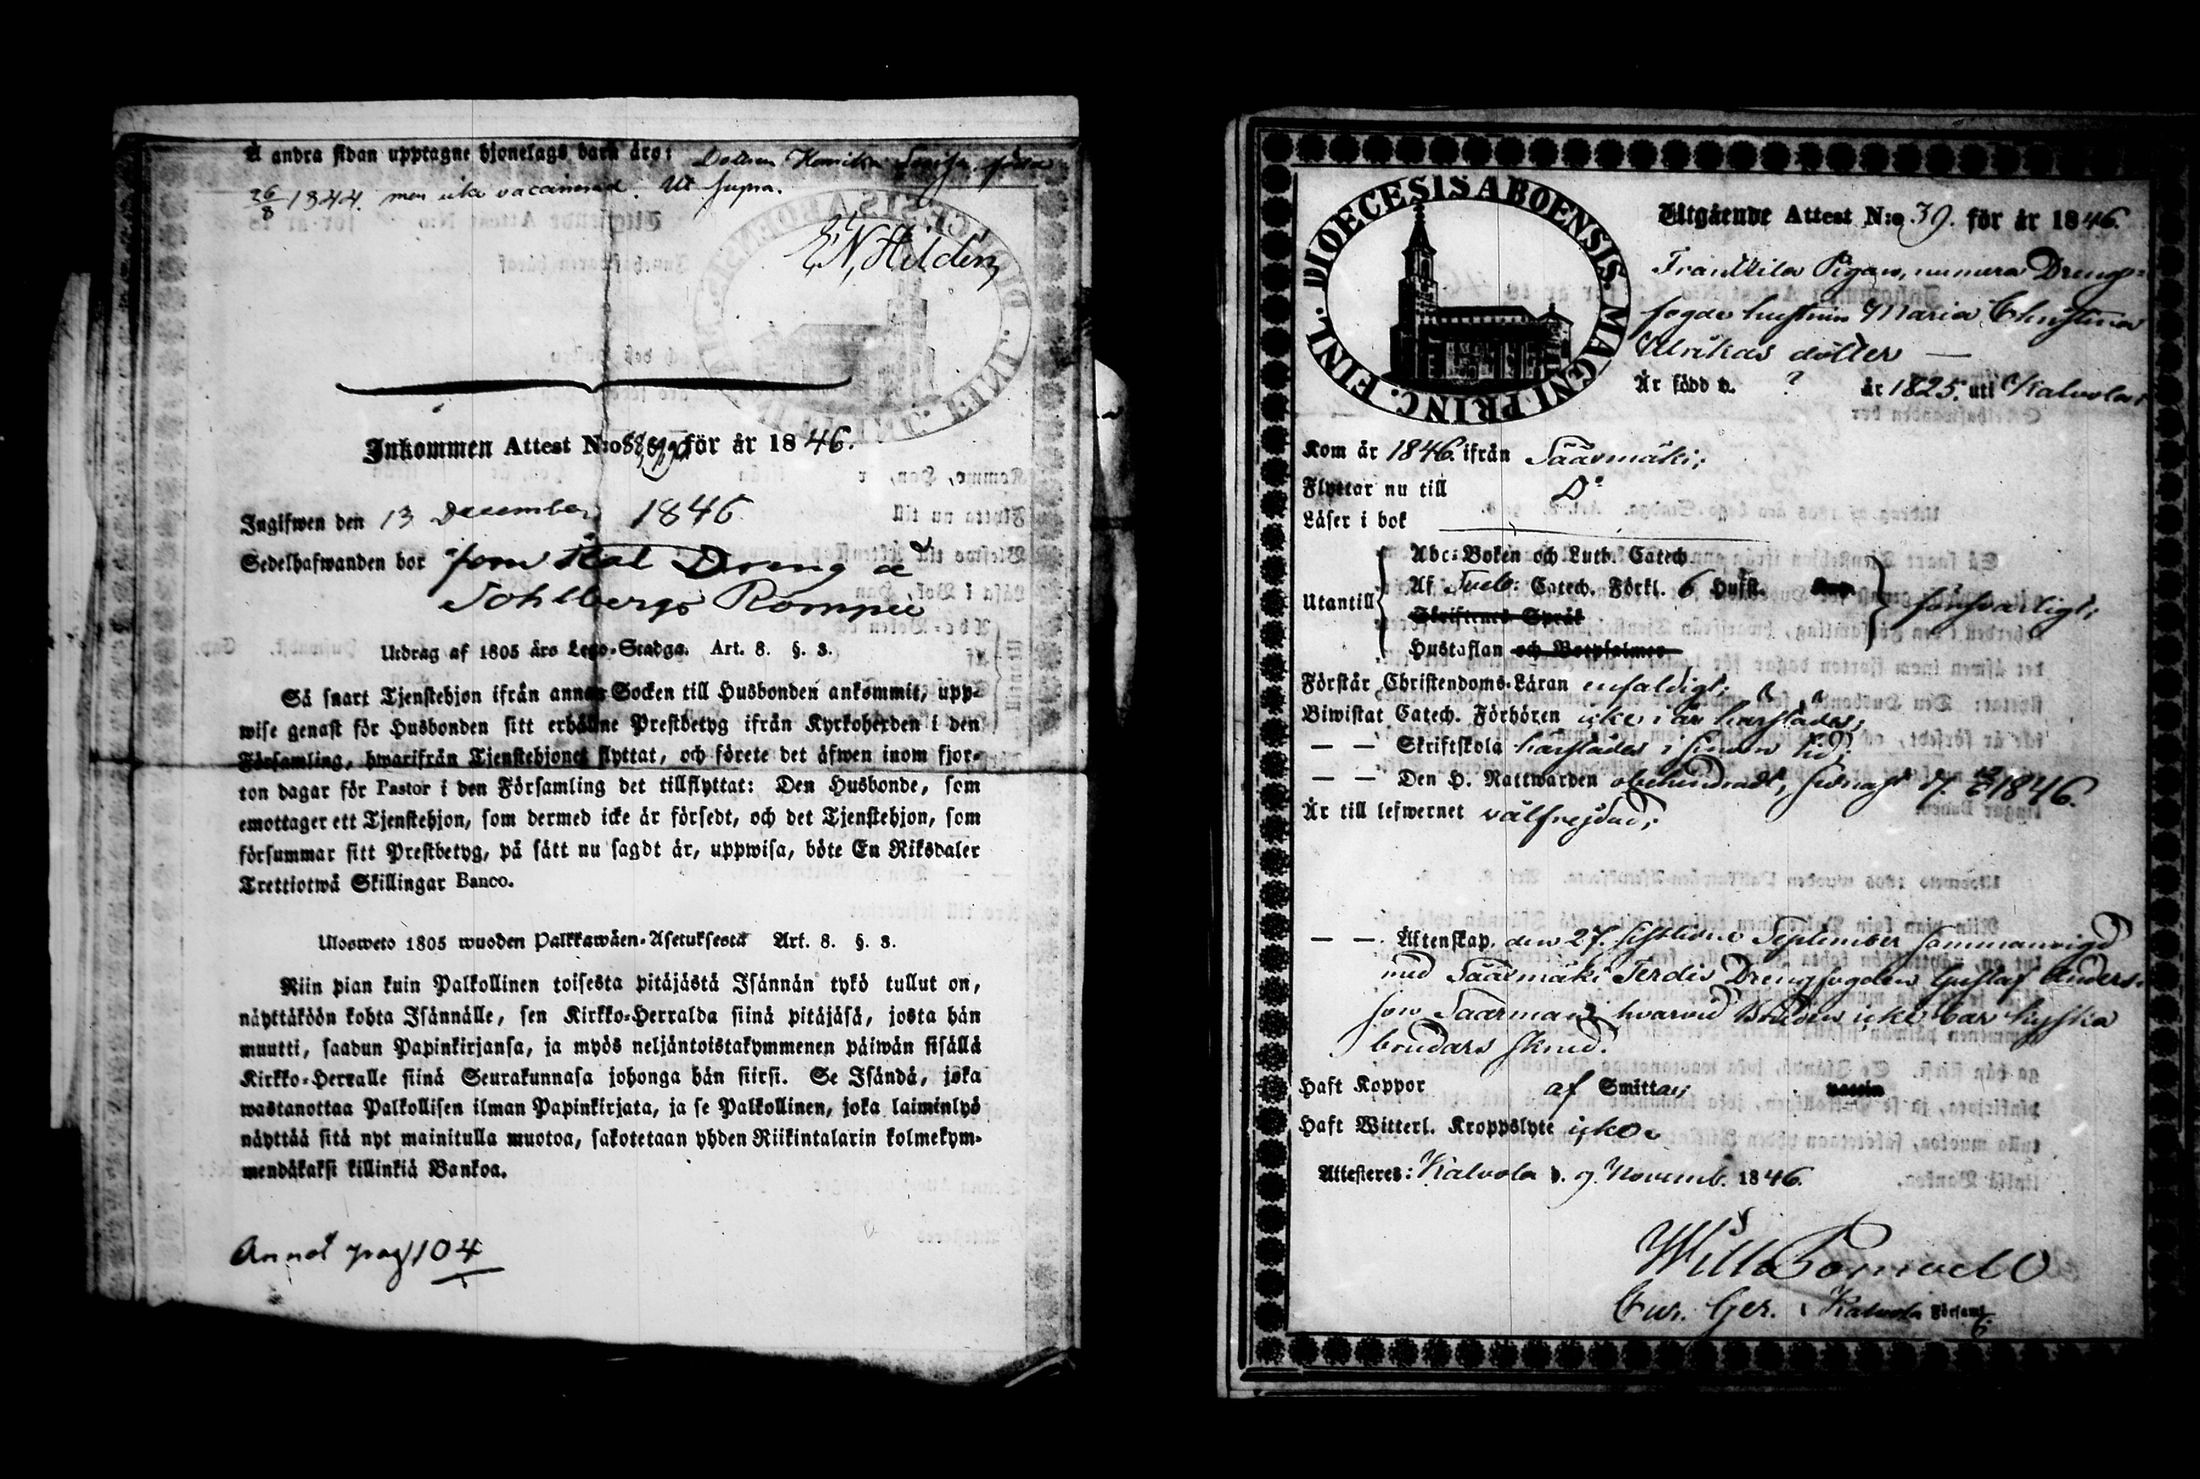 Å andra sidan upptagne hjonelags barn äro: Dottren Henrika Lovisa född
26/8 1844. men icke vaccinerad. Ut supra.
E. N. Hildén
Inkommen Attest N:o 88, 89, 90 för år 1846.
Ingifwen den 13 December 1846
Sedelhafwanden bor som Stat Dreng å
Sohlbergs Rompu
Utdrag af 1805 års Lego-Stadga. Art. 8. §. 3.
Så snart Tjenstehjon ifrån annan Socken till Husbonden ankommit, upp-
wise genast för Husbonden sitt erhållne Prestbetyg ifrån Kyrkoherden i den
Församling, hwarifrån Tjenstehjonet flyttat, och förete det äfwen inom fjor-
ton dagar för Pastor i den Församling det tillflyttat: Den Husbonde, som
emottager ett Tjenstehjon, som dermed icke är försedt, och det Tjenstehjon, som
försummar sitt Prestbetyg, på sätt nu sagdt är, uppwisa, böte En Riksdaler
Trettiotwå Skillingar Banco.
Ulosweto 1805 wuoden Palkkawäen-Asetuksesta Art. 8. §. 3.
Niin pian kuin Palkollinen toisesta pitäjästä Isännän tykö tullut on,
näyttäköön kohta Isännälle, sen Kirkko-Herralda siinä pitäjäsä, josta hän
muutti, saadun Papinkirjansa, ja myös neljäntoistakymmenen päiwän sisällä
Kirkko-Herralle siinä Seurakunnasa johonga hän siirsi. Se Isändä, joka
wastanottaa Palkollisen ilman Papinkirjata, ja se Palkollinen, joka laiminlyö
näyttää sitä nyt mainitulla muotoa, sakotetaan yhden Riikintalarin kolmekym-
mendäkaksi killinkiä Bankoa.
Annot pag 104
DIOECESIS ABOENSIS. MAGNI PRINC. FINL.
Utgående Attest N:o 39. för år 1846.
Pigan, numera Drengs-
fogde hustrun Maria Christina
Ulrikas dotter —
Är född d. ? år 1825. uti Kalvola;
Kom år 1846. ifrån Säärmäki;
Flyttar nu till D:o
Läser i bok
Abc-Boken och Luth. Catech
Af Sveb: Catech. Förkl. 6 Hufst.
Utantill försvarligt;
Skriftenes Språk
Hustaflan och Botpsalmer
Förstår Christendoms-Läran enfaldigt;
Biwistat Catech. Förhören icke i år härstädes;
— — Skriftskola härstädes i sinom tid;
— — Den H. Nattwarden obehindradt, senast d.
1846.
Är till lefwernet välfrejdad;
— — Äktenskap. den 27. sistlidne September sammanvigd
med Säärmäki Ferdis Drengfogden Gustaf Anders-
son Saarman, hvarvid Bruden icke bar kyska
brudars skrud.
Haft Koppor af Smittan;
Haft Witterl. Kroppslyte icke.
Attesteres: Kalvola d. 9. Novemb. 1846.
Cur. Ger. i Kalvola Förfaml.